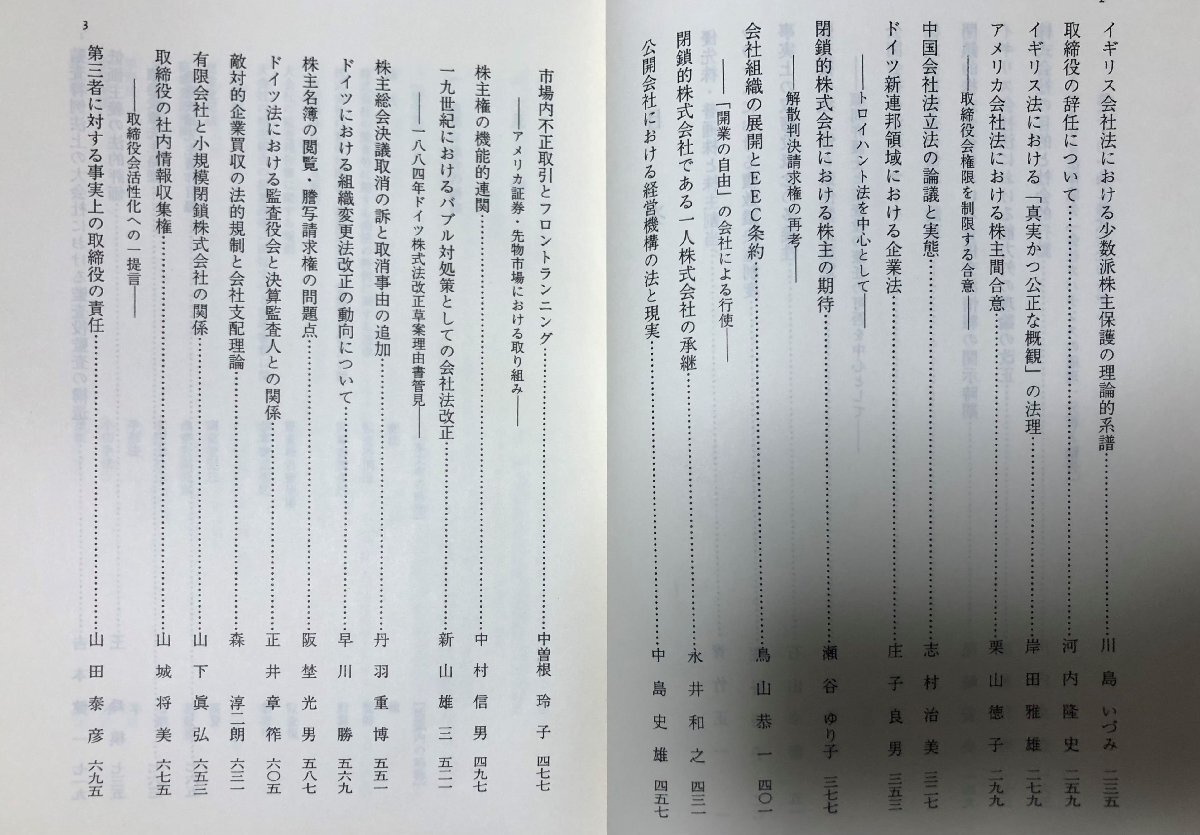 イギリス会社法における少数派株主保護の理論的系譜……………川島いづみ 二三五
取締役の辞任について……………河内隆史 二五九
イギリス法における「真実かつ公正な概観」の法理……………岸田雅雄 二七九
アメリカ会社法における株主間合意……………栗山徳子 二九九
――取締役会権限を制限する合意――
中国会社法立法の論議と実態……………志村治美 三二七
ドイツ新連邦領域における企業法……………庄子良男 三五三
――トロイハント法を中心として――
閉鎖的株式会社における株主の期待……………瀬谷ゆり子 三七七
――解散判決請求権の再考――
会社組織の展開とEEC条約……………鳥山恭一 四〇一
――「開業の自由」の会社による行使――
閉鎖的株式会社である一人株式会社の承継……………永井和之 四三一
公開会社における経営機構の法と現実……………中島史雄 四五七
市場内不正取引とフロントランニング……………中曽根玲子 四七七
――アメリカ証券・先物市場における取り組み――
株主権の機能的連関……………中村信男 四九七
一九世紀におけるバブル対処策としての会社法改正……………新山雄三 五二一
――一八八四年ドイツ株式法改正草案理由書管見――
株主総会決議取消の訴と取消事由の追加……………丹羽重博 五五一
ドイツにおける組織変更法改正の動向について……………早川勝 五六九
株主名簿の閲覧・謄写請求権の問題点……………阪埜光男 五八七
ドイツ法における監査役会と決算監査人との関係……………正井章筰 六〇五
敵対的企業買収の法的規制と会社支配理論……………森淳二朗 六三一
有限会社と小規模閉鎖株式会社の関係……………山下眞弘 六五三
取締役の社内情報収集権……………山城将美 六七五
――取締役会活性化への一提言――
第三者に対する事実上の取締役の責任……………山田泰彦 六九五
3